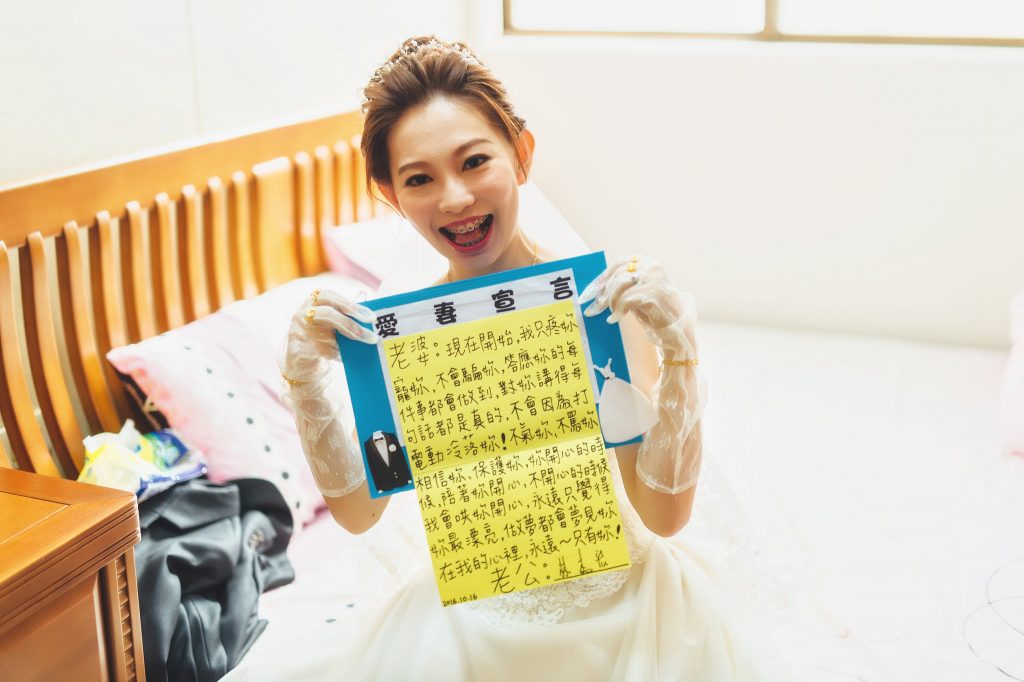 愛妻宣言
老婆。現在開始,我只疼妳
寵妳、不會騙妳,答應妳的每
件事都會做到,對妳講得每
句話都是真的,不會因為打
電動冷落妳!不氣妳、不罵妳
相信妳、保護妳,妳開心的時
候,陪著妳開心,不開心的時候
我會哄妳開心,永遠只覺得
妳最漂亮,做夢都會夢見妳
在我的心裡,永遠~只有妳!
老公:
2016.10.16